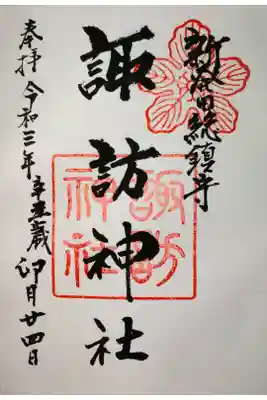 新発田総鎮守
諏訪神社
諏訪
神社
奉拝 令和三年辛丑歳卯月廿四日